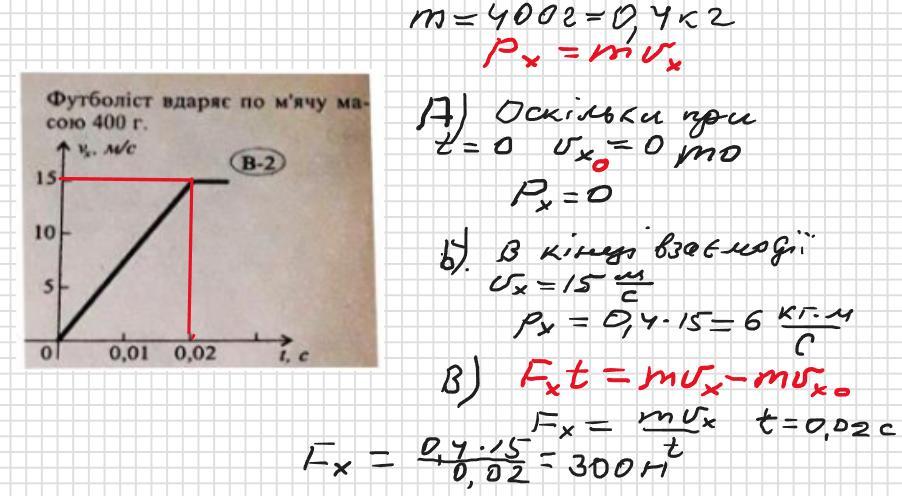 m = 400г = 0,4кг
Pₓ = mvₓ
Футболіст вдаряє по м'ячу ма-
сою 400 г.
vₓ, м/с
В-2
15
10
5
0
0,01
0,02
t, с
А) Оскільки при
t = 0 vₓ₀ = 0 то
Pₓ = 0
Б). В кінці взаємодії
vₓ = 15 м/с
pₓ = 0,4·15 = 6 кг·м/с
В) Fₓt = mvₓ - mvₓ₀
Fₓ = mvₓ/t t = 0,02 с
Fₓ = 0,4·15/0,02 = 300 Н